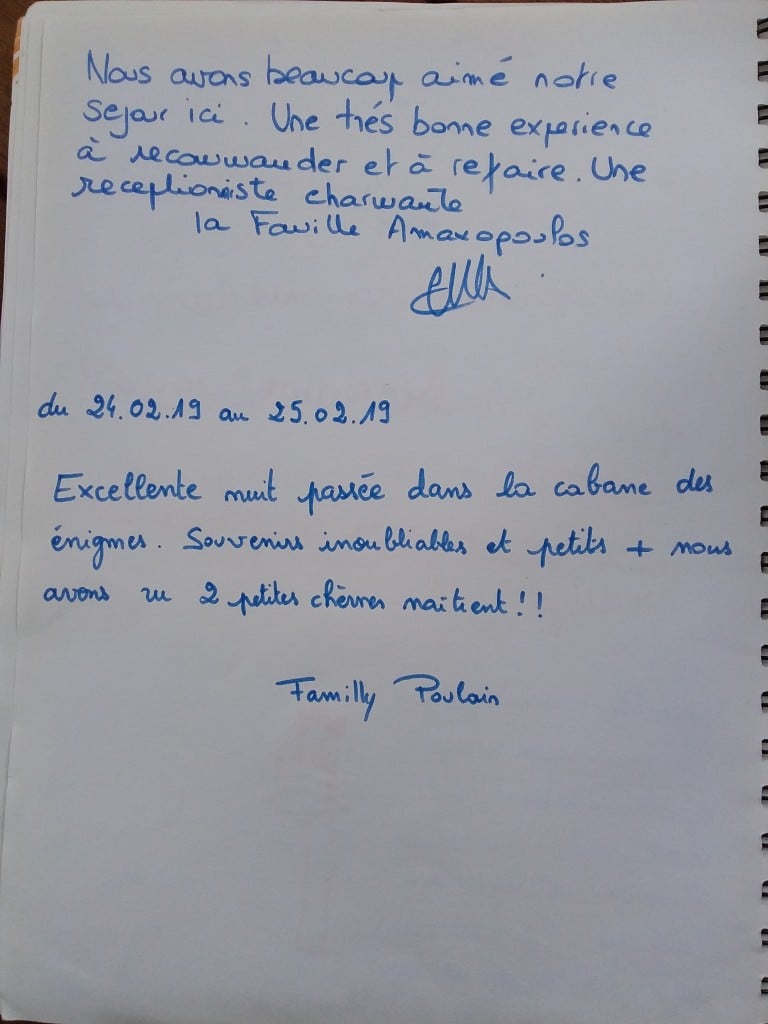 Nous avons beaucoup aimé notre
sejour ici. Une trés bonne experience
à recommander et à refaire. Une
receptioniste charmante
la Famille Amaxopoulos
du 24.02.19 au 25.02.19
Excellente nuit passée dans la cabane des
énigmes. Souvenirs inoubliables et petits + nous
avons vu 2 petites chèvres naîtient!!
Familly Poulain